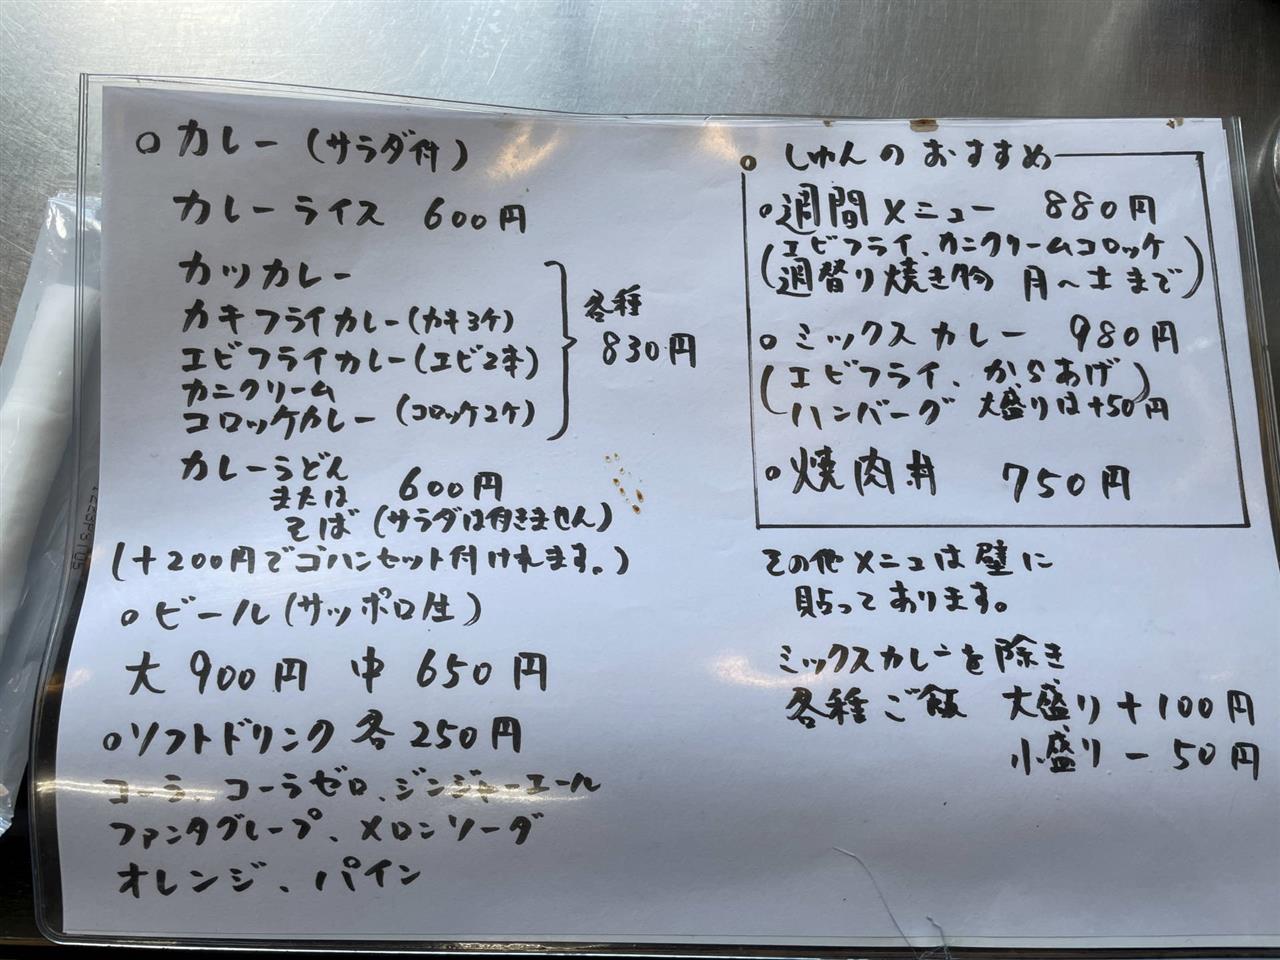 ○カレー(サラダ付)
カレーライス 600円
カツカレー
カキフライカレー(カキ3ケ)
エビフライカレー(エビ2本)
カニクリーム
コロッケカレー(コロッケ2ケ)
各種
830円
カレーうどん
または 600円
そば(サラダは付きません)
(+200円でゴハンセット付けれます。)
○ビール(サッポロ生)
大 900円 中 650円
○ソフトドリンク各250円
コーラ、コーラゼロ、ジンジャーエール
ファンタグレープ、メロンソーダ
オレンジ、パイン
○しゅんのおすすめ
○週間メニュー 880円
(エビフライ、カニクリームコロッケ
週替り焼き物 月〜土まで)
○ミックスカレー 980円
(エビフライ、からあげ)
ハンバーグ 大盛りは+50円
○焼肉丼 750円
その他メニューは壁に
貼ってあります。
ミックスカレーを除き
各種ご飯 大盛り+100円
小盛り-50円